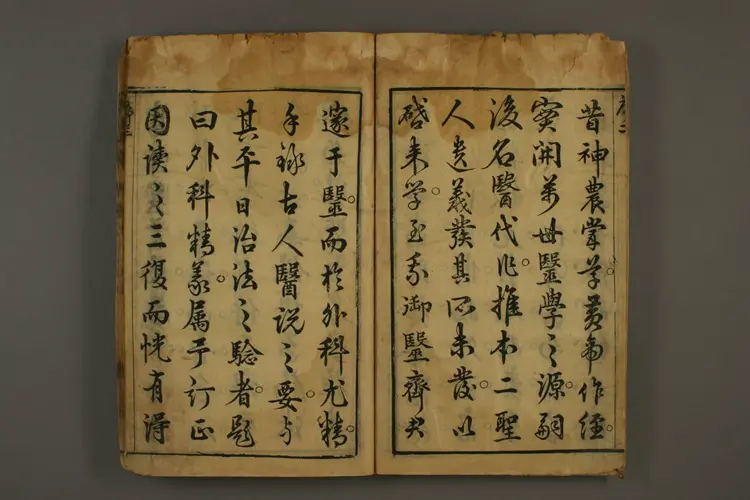 昔神農嘗草。黃帝作經。
實開萬世毉學之源。嗣
後名醫代作。推本二聖
人遺義。發其所未發。以
啓来学。至我御毉齊大
邃于毉。而於外科尤精。
手錄古人醫説之要。与
其平日治法之驗者。題
曰外科精義。属予訂正
因读之三復而恍有得